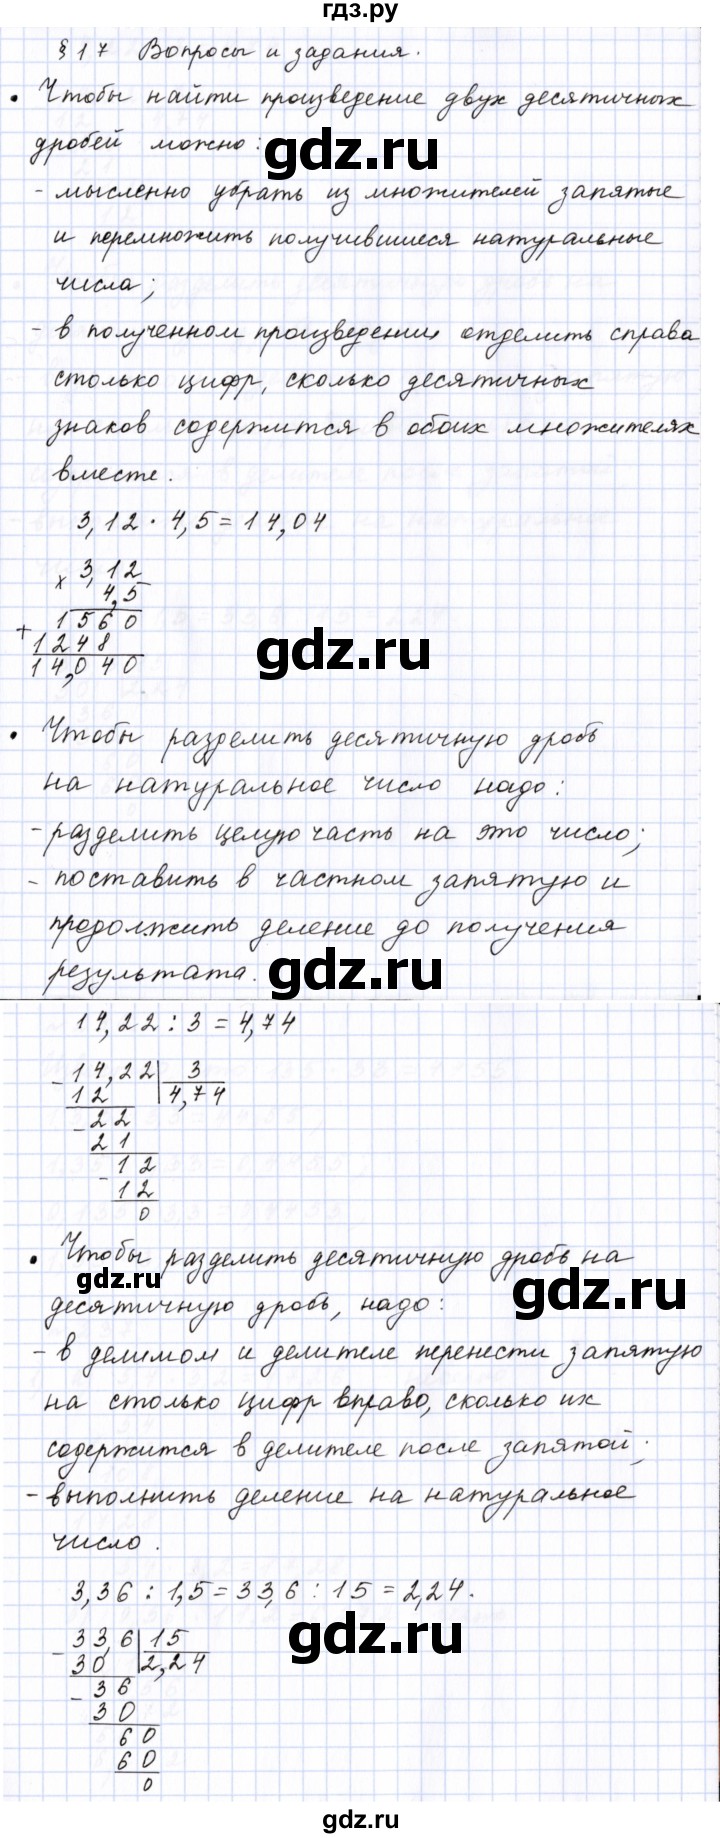 гдз.ру
§ 17 Вопросы и задания.
• Чтобы найти произведение двух десятичных
дробей можно:
gdz.ru
- мысленно убрать из множителей запятые
и перемножить получившиеся натуральные
числа;
- в полученном произведении отделить справа
столько цифр, сколько десятичных
знаков содержится в обоих множителях
вместе.
3,12 · 4,5 = 14,04
× 3,12
4,5
+ 1560
1248
14,040
gdz.ru
• Чтобы разделить десятичную дробь
на натуральное число надо:
- разделить целую часть на это число;
- поставить в частном запятую и
продолжить деление до получения
результата.
gdz.ru
14,22 : 3 = 4,74
- 14,22 | 3
12 | 4,74
- 22
21
- 12
12
0
• Чтобы разделить десятичную дробь на
gdz.ru
gdz.ru
десятичную дробь, надо:
- в делимом и делителе перенести запятую
на столько цифр вправо, сколько их
содержится в делителе после запятой;
- выполнить деление на натуральное
число.
3,36 : 1,5 = 33,6 : 15 = 2,24.
gdz.ru
- 33,6 | 15
30 | 2,24
- 36
30
60
60
0
gdz.ru